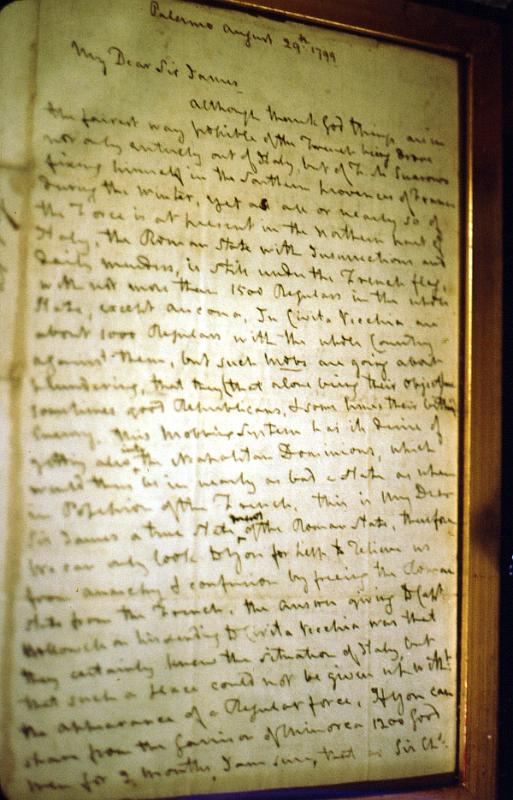 Palermo August 29th: 1799
My Dear Sir James
although thank God things are in
the fairest way possible of the French being drove
not only entirely out of Italy, but of Suwarow
fixing himself in the Southern provinces of France
during the Winter, yet as all or nearly so of
the Force is at present in the northern part of
Italy, the Roman State with Insurrections and
daily murders, is still under the French flag,
with not more than 1500 Regulars in the whole
State, except ancona, In Civita Vecchia are
about 1000 Regulars with the whole Country
against them, but such mobs are going about
plundering, that they (that alone being their object)
sometimes good Republicans, & some times their
Enemy. This Mobbing System has its desire of
getting also into the Neapolitan Dominions, which
would then be in nearly as bad a state as when
in Possession of the French. This is My Dear
Sir James a true statement of the Roman State, therefore
we can only look to you for help to relieve us
from anarchy & confusion by freeing the Roman
state from the French. the answer giving to Capt:
Hallowell on his sending to Civita Vecchia was that
they certainly knew the situation of Italy, but
that such a place could not be given up witht:
the appearance of a Regular force, If you can
share from the Garrison of Minorca 1200 good
men for 2 months, I am sure, that Sir Chs: